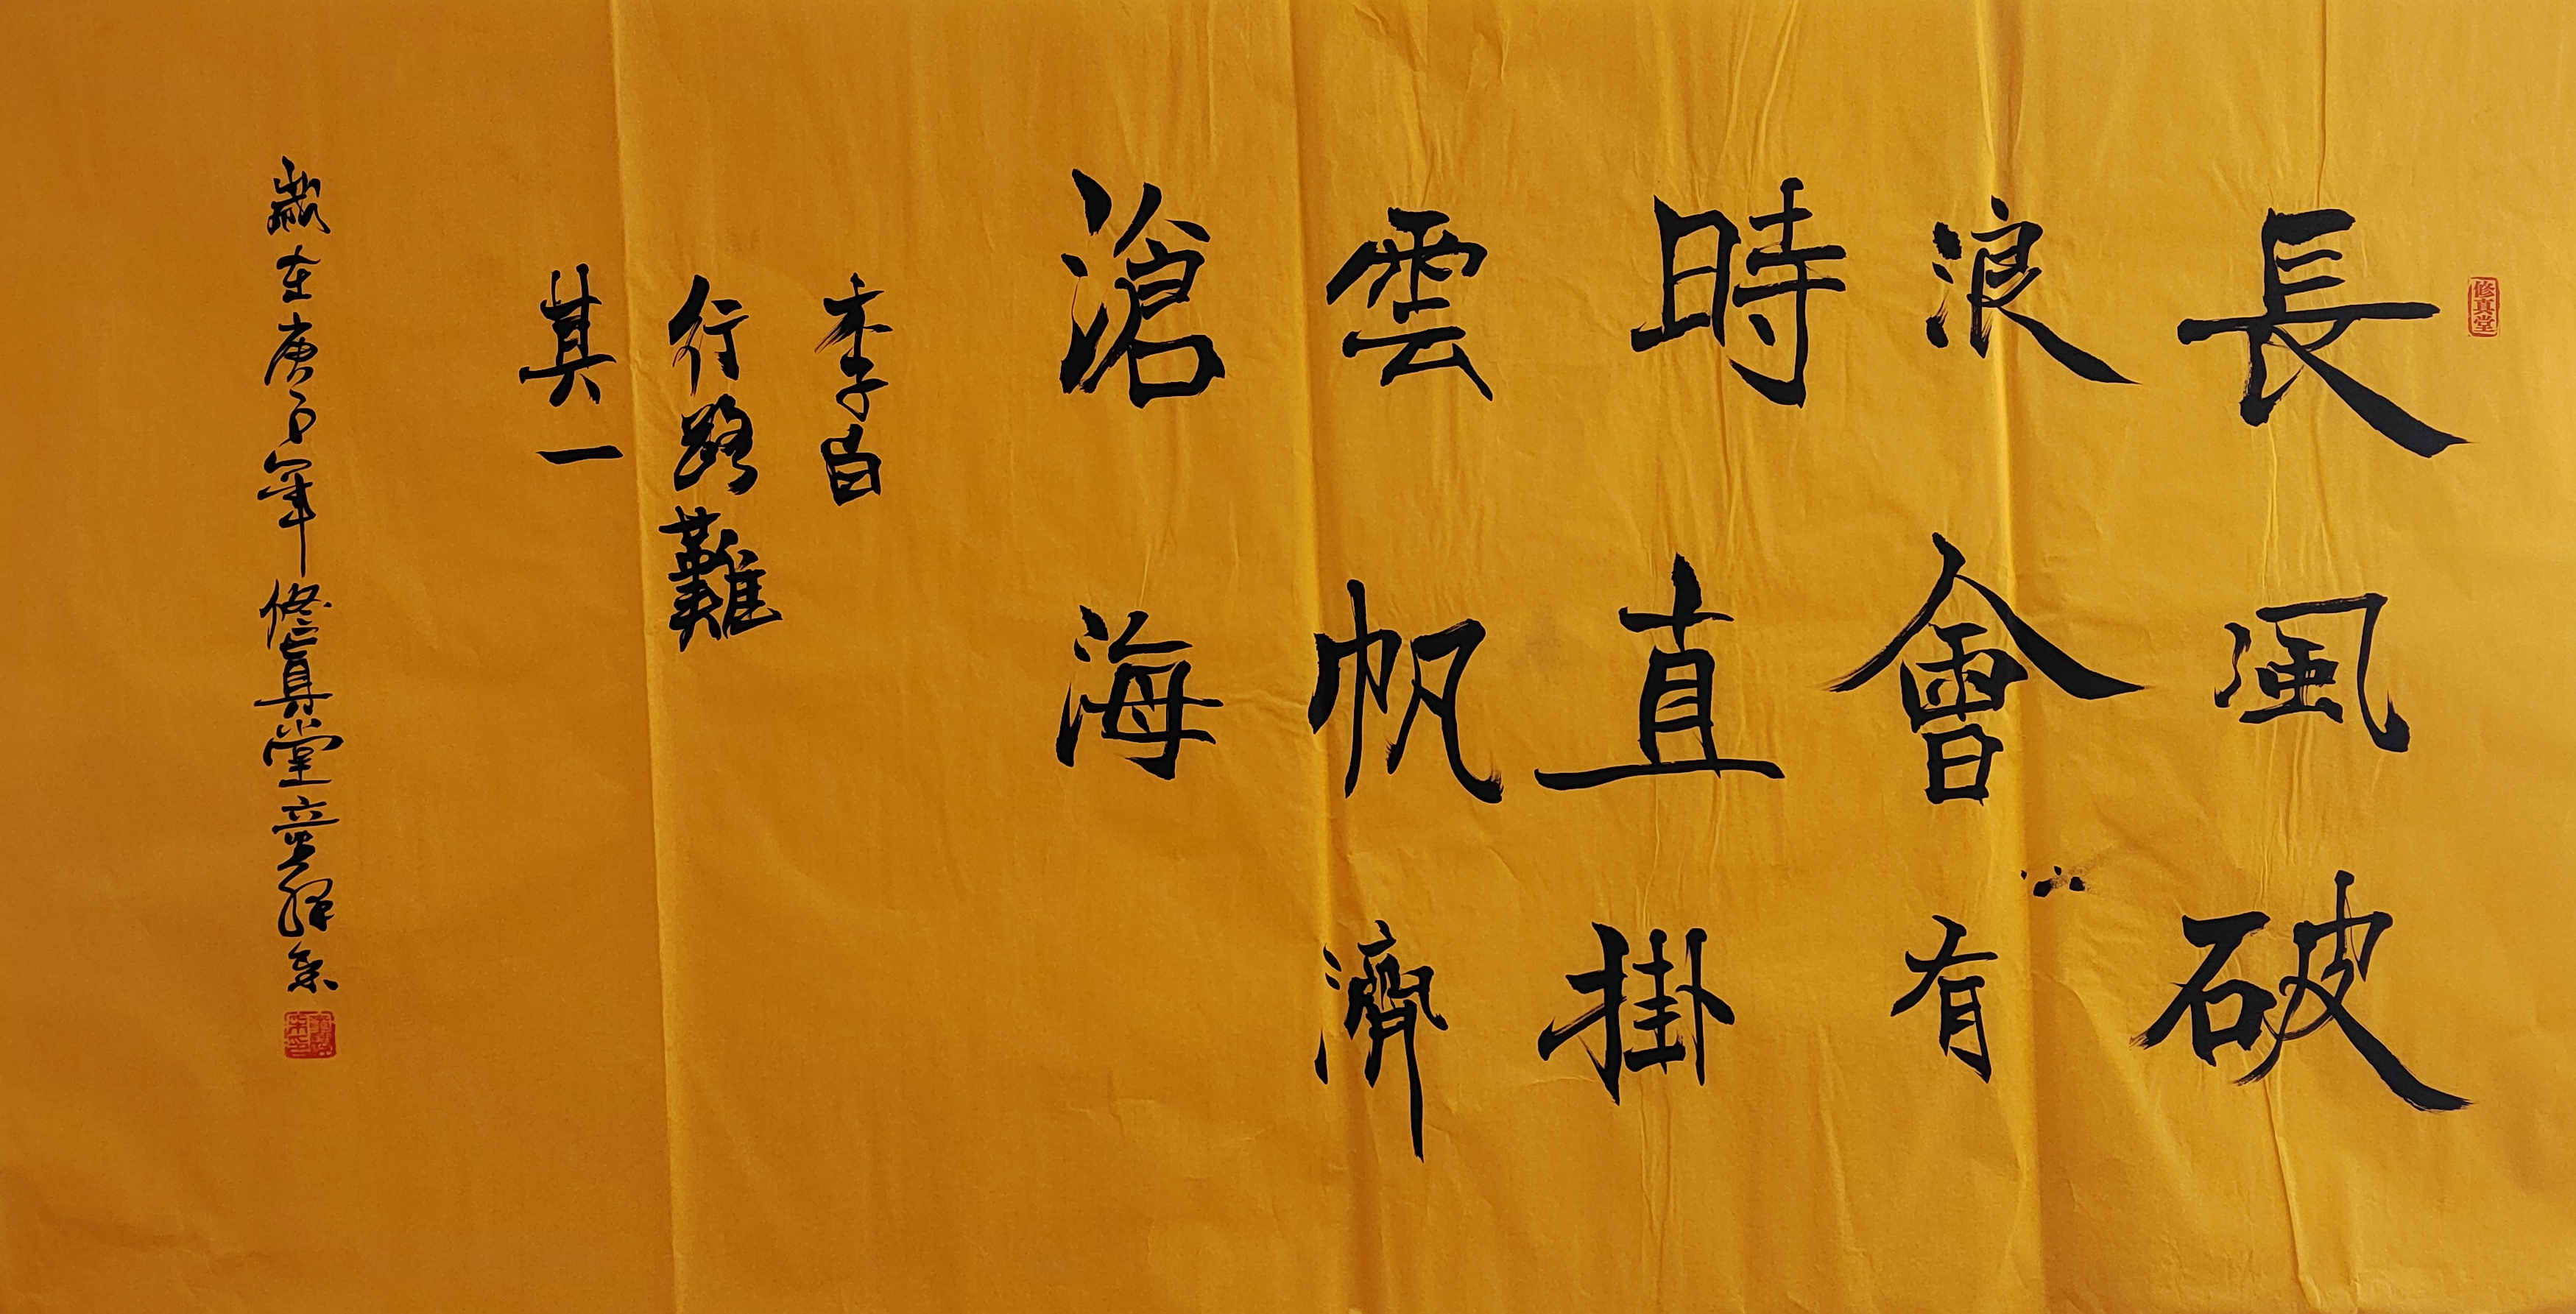 修真堂
長風破
浪會有
時直掛
雲帆濟
滄海
李白
行路難
其一
歲在庚子年修真堂童輝榮